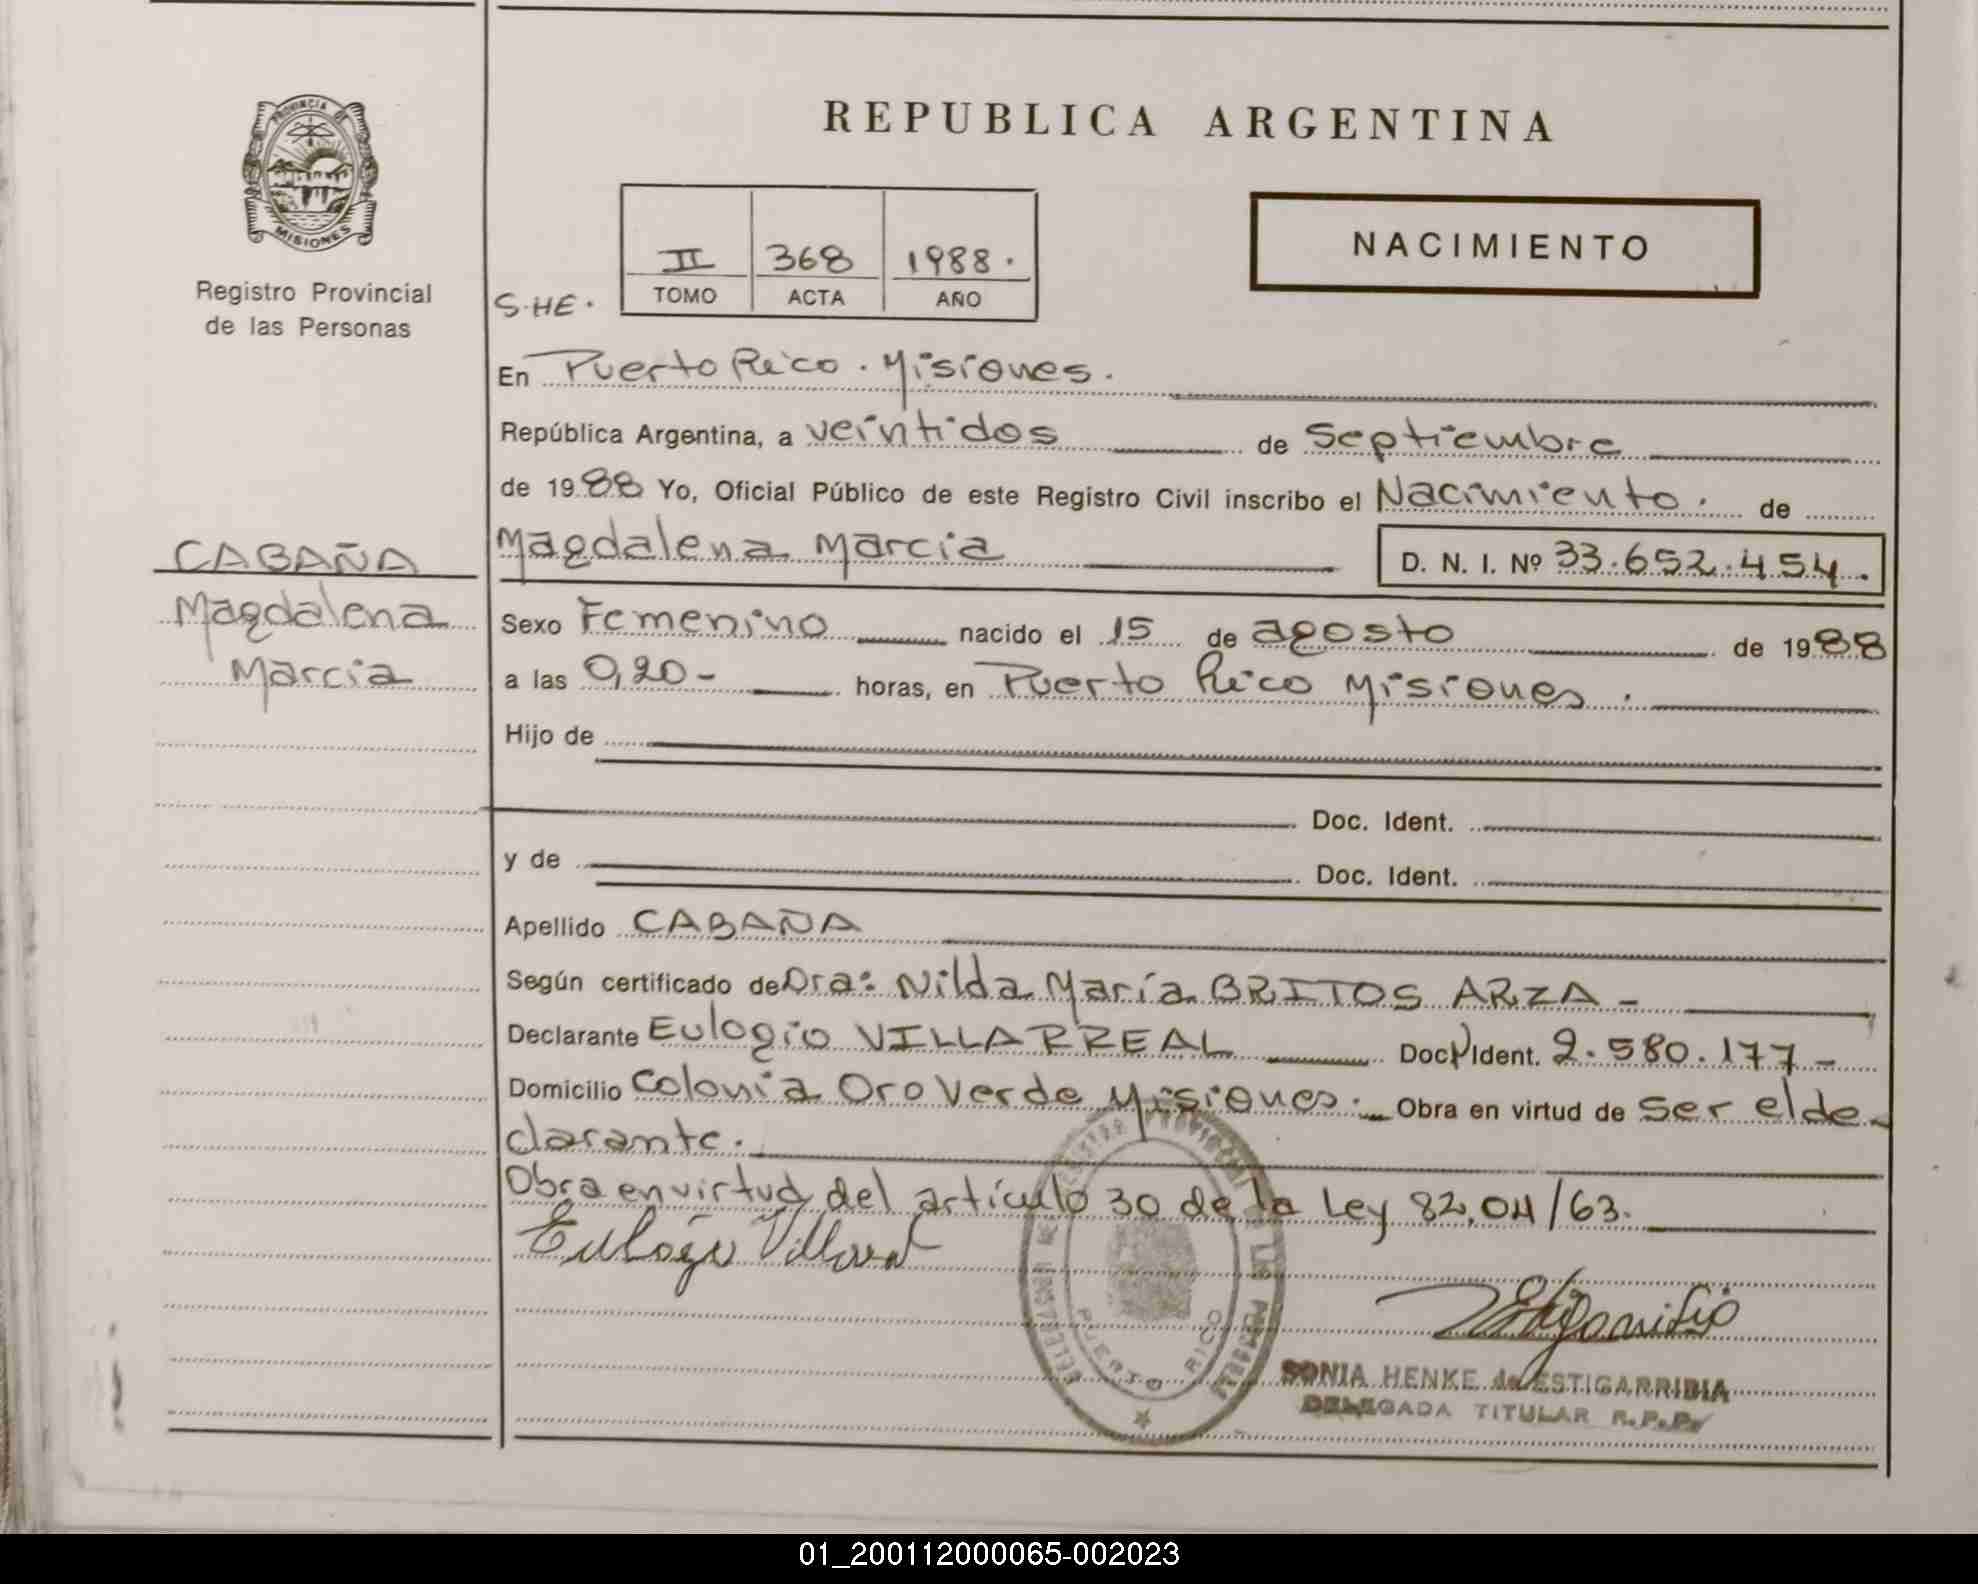 REPUBLICA ARGENTINA
PROVINCIA DE
MISIONES
Registro Provincial
de las Personas
NACIMIENTO
II 368 1988.
TOMO ACTA AÑO
S.HE.
En Puerto Rico. Misiones.
República Argentina, a veintidos de Septiembre
de 1988 Yo, Oficial Público de este Registro Civil inscribo el Nacimiento. de
CABAÑA
Magdalena
Marcia
Magdalena Marcia D. N. I. Nº 33.652.454.
Sexo Femenino nacido el 15 de agosto de 1988
a las 0,20- horas, en Puerto Rico Misiones.
Hijo de
Doc. Ident.
y de Doc. Ident.
Apellido CABAÑA
Según certificado de Dra: Nilda María BRITOS ARZA-
Declarante Eulogio VILLARREAL Doc. Ident. 2.580.177-
Domicilio Colonia Oro Verde Misiones. Obra en virtud de ser el de-
clarante.
Obra en virtud del artículo 30 de la Ley 82.04/63.
Eulogio Villareal
PUERTO RICO
SONIA HENKE de ESTIGARRIBIA
DELEGADA TITULAR R.P.P.
01_200112000065-002023